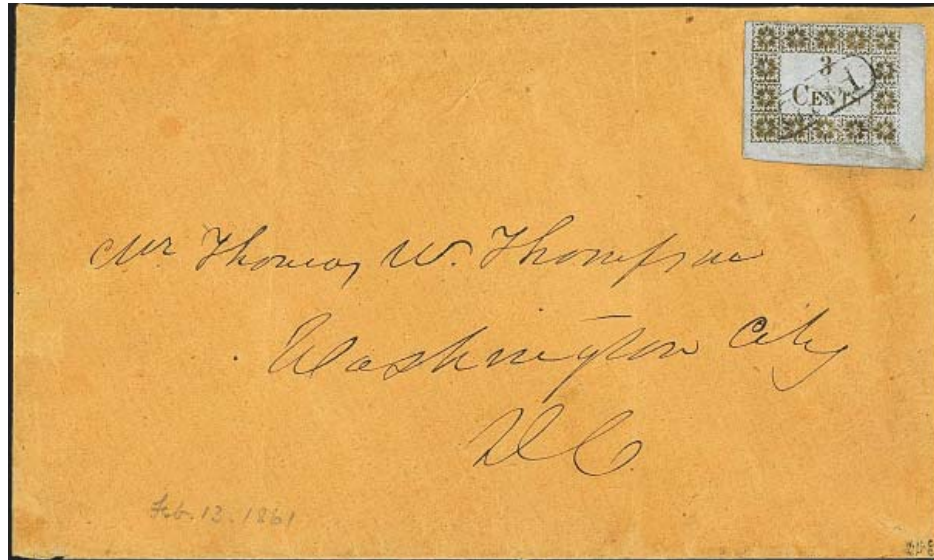 3
CENTS
Mr Thomas W. Thompson
Washington City
D C.
Feb. 13. 1861